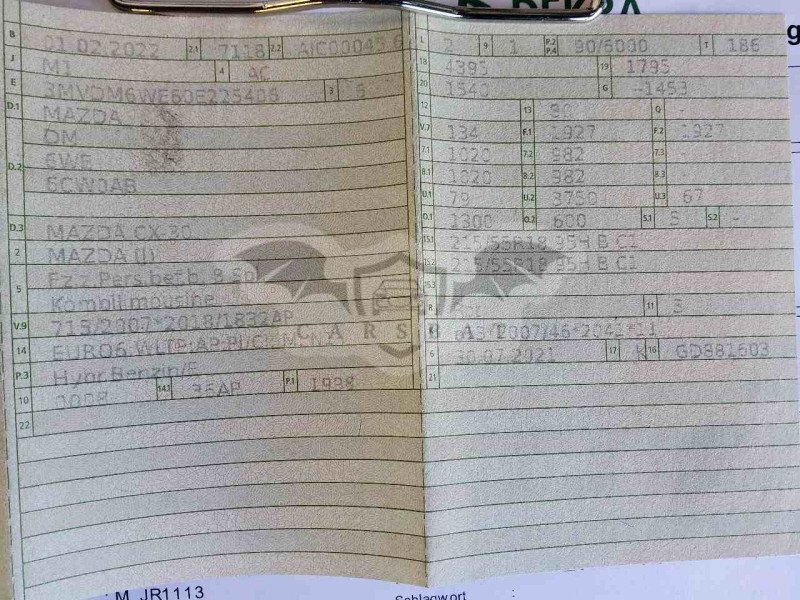 DEKRA
B 01.02.2022 2.1 7118 2.2 AIC00045 6
J M1 4 AC
E 3MVDM6WE60E225406 3 5
D.1 MAZDA
DM
D.2 6WE
6CW0AB
D.3 MAZDA CX-30
2 MAZDA (J)
5 Fz.z.Pers.bef.b. 8 Sp
Kompl.limousine
V.9 715/2007*2018/1832AP
14 EURO6
P.3 Hybr.Benzin/E
10 0008 14.1 36AP P.1 1998
22
L 2 9 1 P.2 P.4 90/6000 T 186
18 4395 19 1795
20 1540 G -1453
12 13 90 Q
V.7 134 F.1 1927 F.2 1927
7.1 1020 7.2 982 7.3 -
8.1 1020 8.2 982 8.3 -
U.1 79 U.2 3750 U.3 67
O.1 1300 O.2 600 S.1 5 S.2 -
15.1 215/55R18 95H B C1
215/55R18 95H B C1
R 11 3
2007/46*2042*11
6 30.07.2021 17 K 16 GD881603
21
CARSBAT
M JR1113
Schlagwort :